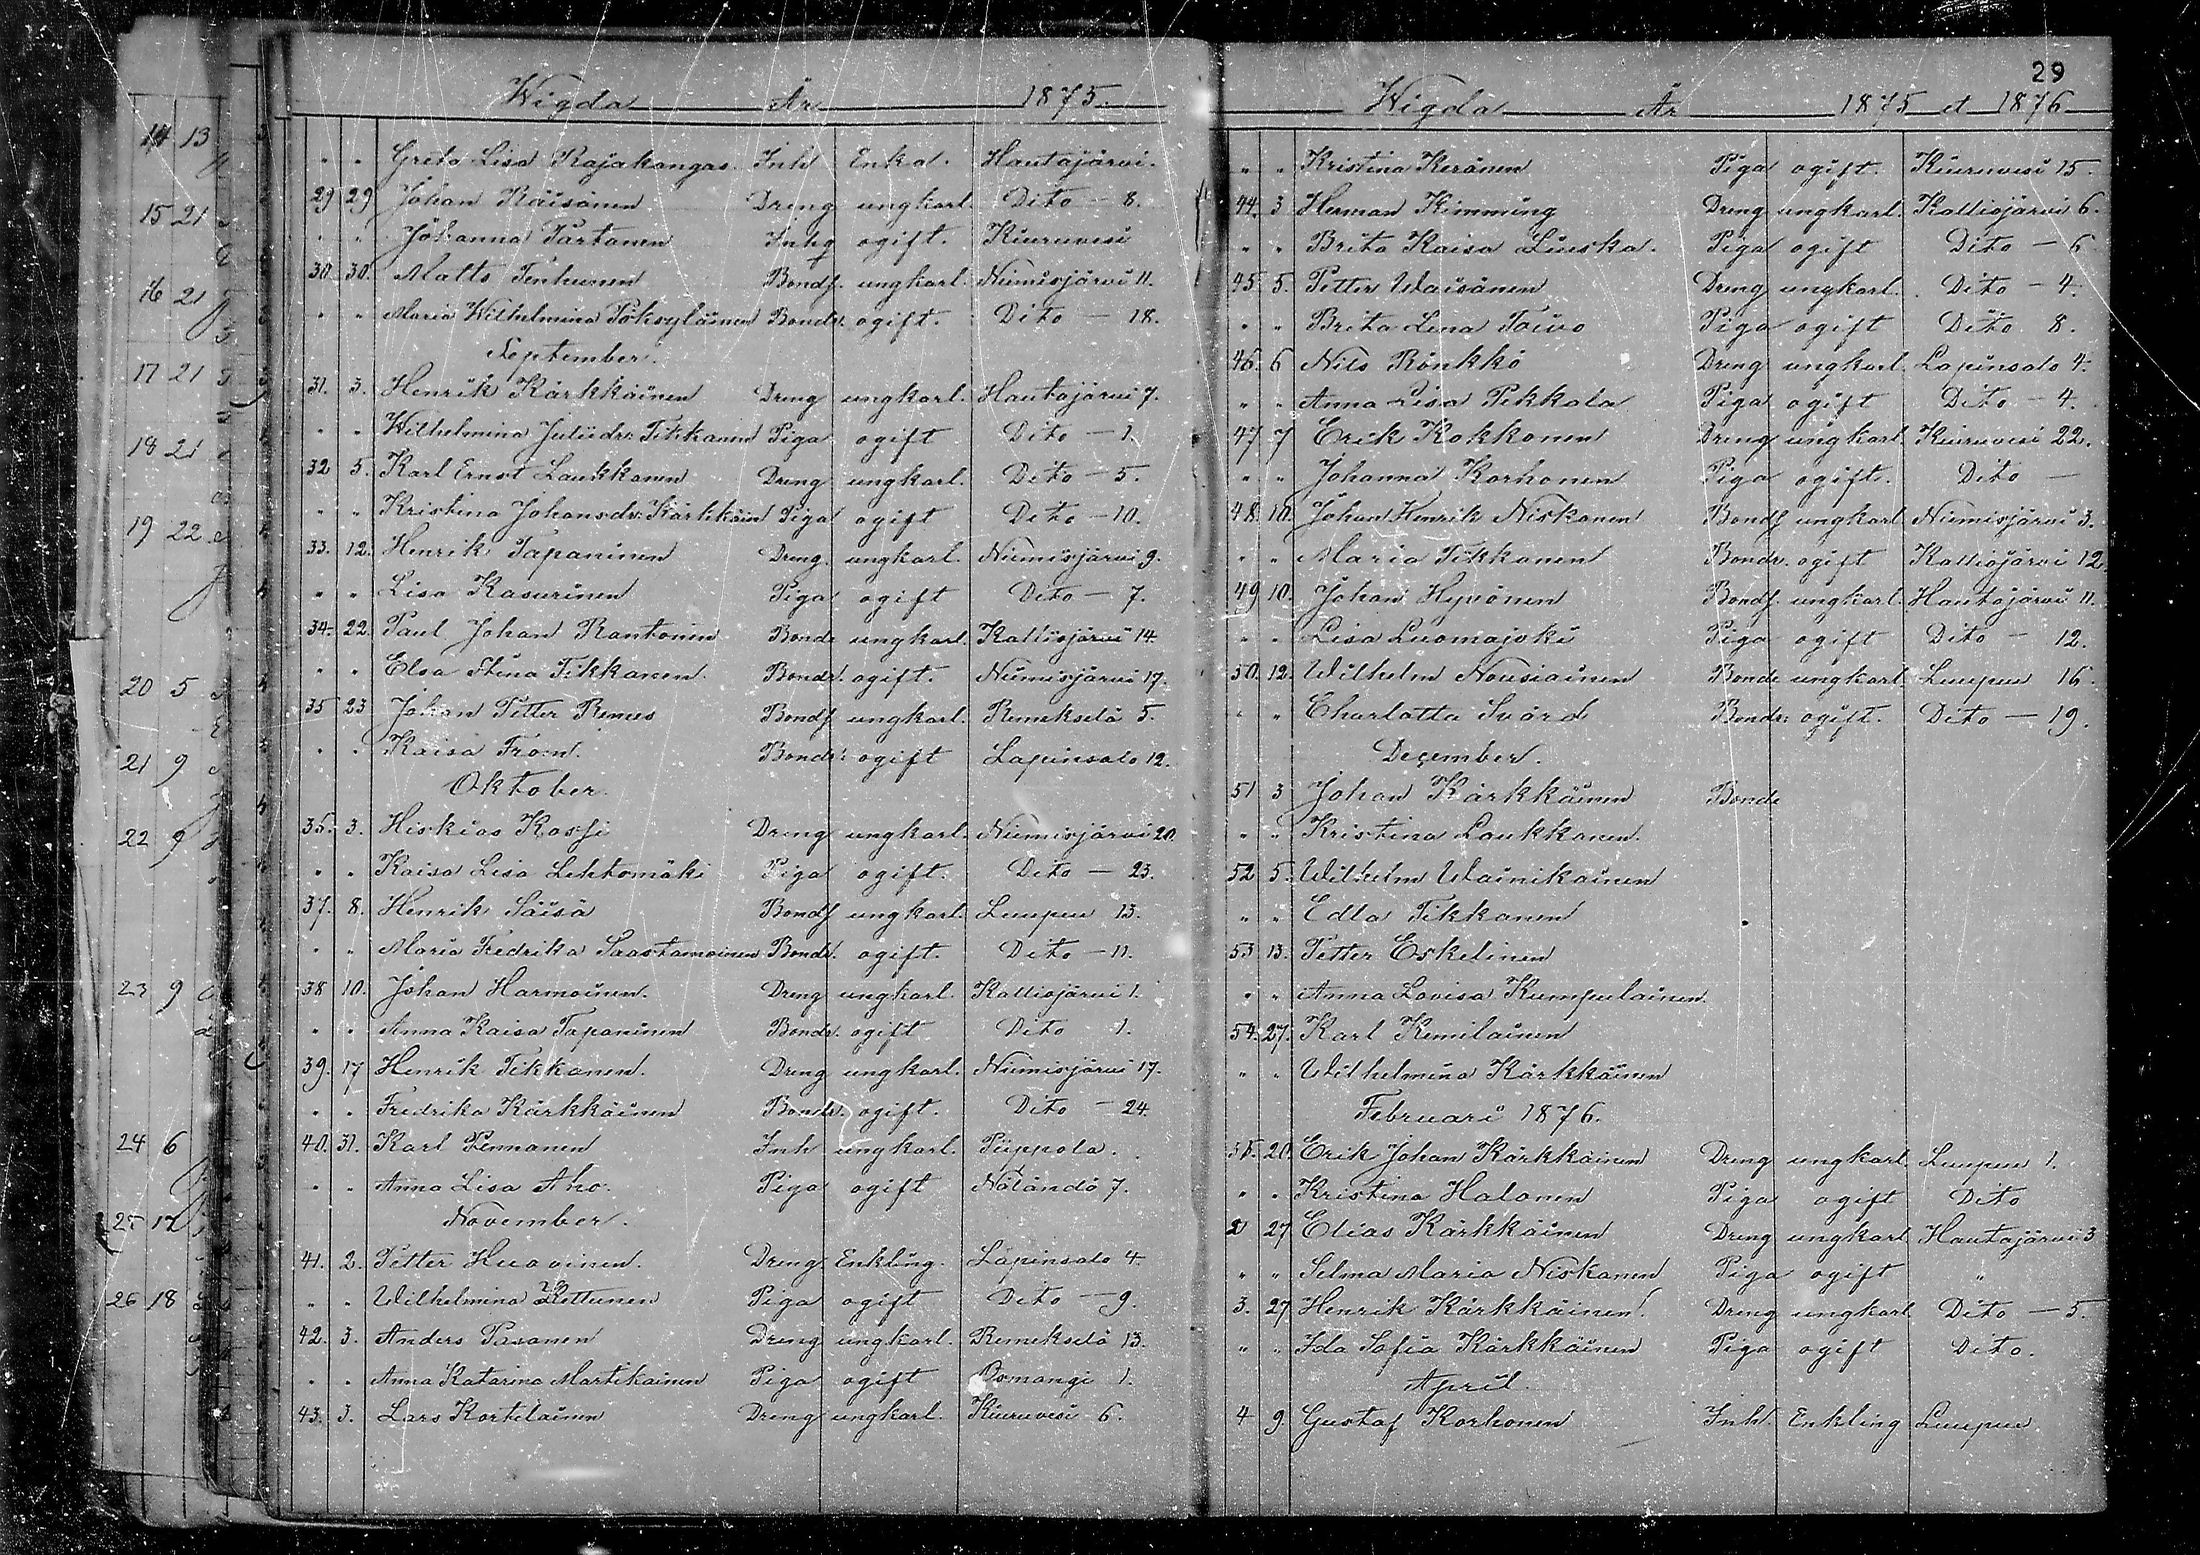 Wigda År 1875.
" " Greta Lisa Rajakangas Inh Enka. Hautajärvi.
29 29 Johan Räisänen Dreng ungkarl. Dito - 8.
" " Johanna Tartanen Inhg ogift. Kiuruvesi
30. 30. Matts Tenhunen Bondf. ungkarl. Niemisjärvi 11.
" " Maria Wilhelmina Pöksyläinen Bondr. ogift. Dito - 18.
September.
31. 3. Henrik Kärkkäinen Dreng ungkarl. Hautajärvi 7.
" " Wilhelmina Juliidr: Tikkanen Piga ogift Dito - 1.
32 5. Karl Ernst Laukkanen Dreng ungkarl. Dito - 5.
" " Kristina Johansdr: Kärkkäin Piga ogift Dito - 10.
33. 12. Henrik Tapaninen Dreng. ungkarl. Niemisjärvi 9.
" " Lisa Kasurinen Piga ogift Dito - 7.
34. 22. Paul Johan Rantonen Bonde ungkarl. Kalliojärvi 14.
" " Elsa Stina Tikkanen. Bondr. ogift. Niemisjärvi 17.
35 23 Johan Petter Remes Bondf ungkarl. Remekselä 5.
" " Kaisa From. Bondr: ogift Lapinsalo 12.
Oktober.
35. 3. Hiskias Kassi Dreng ungkarl. Niemisjärvi 20.
" " Kaisa Lisa Lehtomäki Piga ogift. Dito - 23.
37. 8. Henrik Säisä Bondf ungkarl. Luupu 13.
" " Maria Fredrika Saastamoinen Bondr. ogift. Dito - 11.
38 10. Johan Harmoinen. Dreng ungkarl. Kalliojärvi 1.
" " Anna Kaisa Tapaninen Bondr. ogift Dito 1.
39. 17 Henrik Tikkanen. Dreng ungkarl. Niemisjärvi 17.
" " Fredrika Kärkkäinen Bondr. ogift. Dito - 24.
40. 31. Karl Pennanen Inh ungkarl. Piippola.
" " Anna Lisa Aho. Piga ogift Näländö 7.
November.
41. 2. Petter Huovinen. Dreng Enkling. Lapinsalo 4.
" " Wilhelmina Kettunen Piga ogift Dito - 9.
42. 3. Anders Pasanen Dreng ungkarl. Remekselä 13.
" " Anna Katarina Martikainen Piga ogift Osmangi 1.
43. 3. Lars Kortelainen Dreng ungkarl. Kiuruvesi 6.
29
Wigda År 1875 et 1876
" " Kristina Keränen Piga ogift. Kiuruvesi 15.
44. 3 Herman Kimming Dreng ungkarl. Kalliojärvi 6.
" " Brita Kaisa Liuska. Piga ogift Dito - 6
45 5. Petter Waisänen Dreng ungkarl. Dito - 4.
" " Brita Lena Toivo Piga ogift Dito 8.
46. 6 Nils Rönkkö Dreng ungkarl. Lapinsalo 4.
" " Anna Lisa Pekkala Piga ogift Dito - 4.
47 7 Erik Kokkonen Dreng ungkarl Kiuruvesi 22.
" " Johanna Korhonen Piga ogift. Dito -
48. 10. Johan Henrik Niskanen Bondf ungkarl Niemisjärvi 3.
" " Maria Tikkanen Bondr. ogift Kalliojärvi 12.
49 10. Johan Hyvönen Bondf. ungkarl. Hautajärvi 11.
" " Lisa Luomajoki Piga ogift Dito - 12.
50. 12. Wilhelm Nousiainen Bonde ungkarl. Luupu 16.
" " Charlotta Svärd Bondr: ogift. Dito - 19.
December.
51 3 Johan Kärkkäinen Bonde
" " Kristina Laukkanen.
52 5. Wilhelm Wainikainen
" " Edla Tikkanen
53 13. Petter Eskelinen
" " Anna Lovisa Kumpulainen.
54. 27. Karl Kemiläinen
" " Wilhelmina Kärkkäinen
Februari 1876.
20. Erik Johan Kärkkäinen Dreng ungkarl Luupu 1.
" " Kristina Halonen Piga ogift Dito
2 27 Elias Kärkkäinen Dreng ungkarl Hautajärvi 3
" " Selma Maria Niskanen Piga ogift "
3. 27 Henrik Kärkkäinen. Dreng ungkarl Dito - 5.
" " Ida Sofia Kärkkäinen Piga ogift Dito.
April.
4 9. Gustaf Korhonen Inh. Enkling Luupu.
14 13
15 21
16 21
17 21
18 21
19 22
20 5
21 9
22 9
23 9
24 6
25 17
26 18